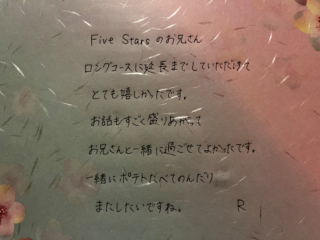 Five Stars のお兄さん
ロングコースに延長までしていただけて
とても嬉しかったです。
お話もすごく盛りあがって
お兄さんと一緒に過ごせてよかったです。
一緒にポテトたべてのんだり
またしたいですね。 R